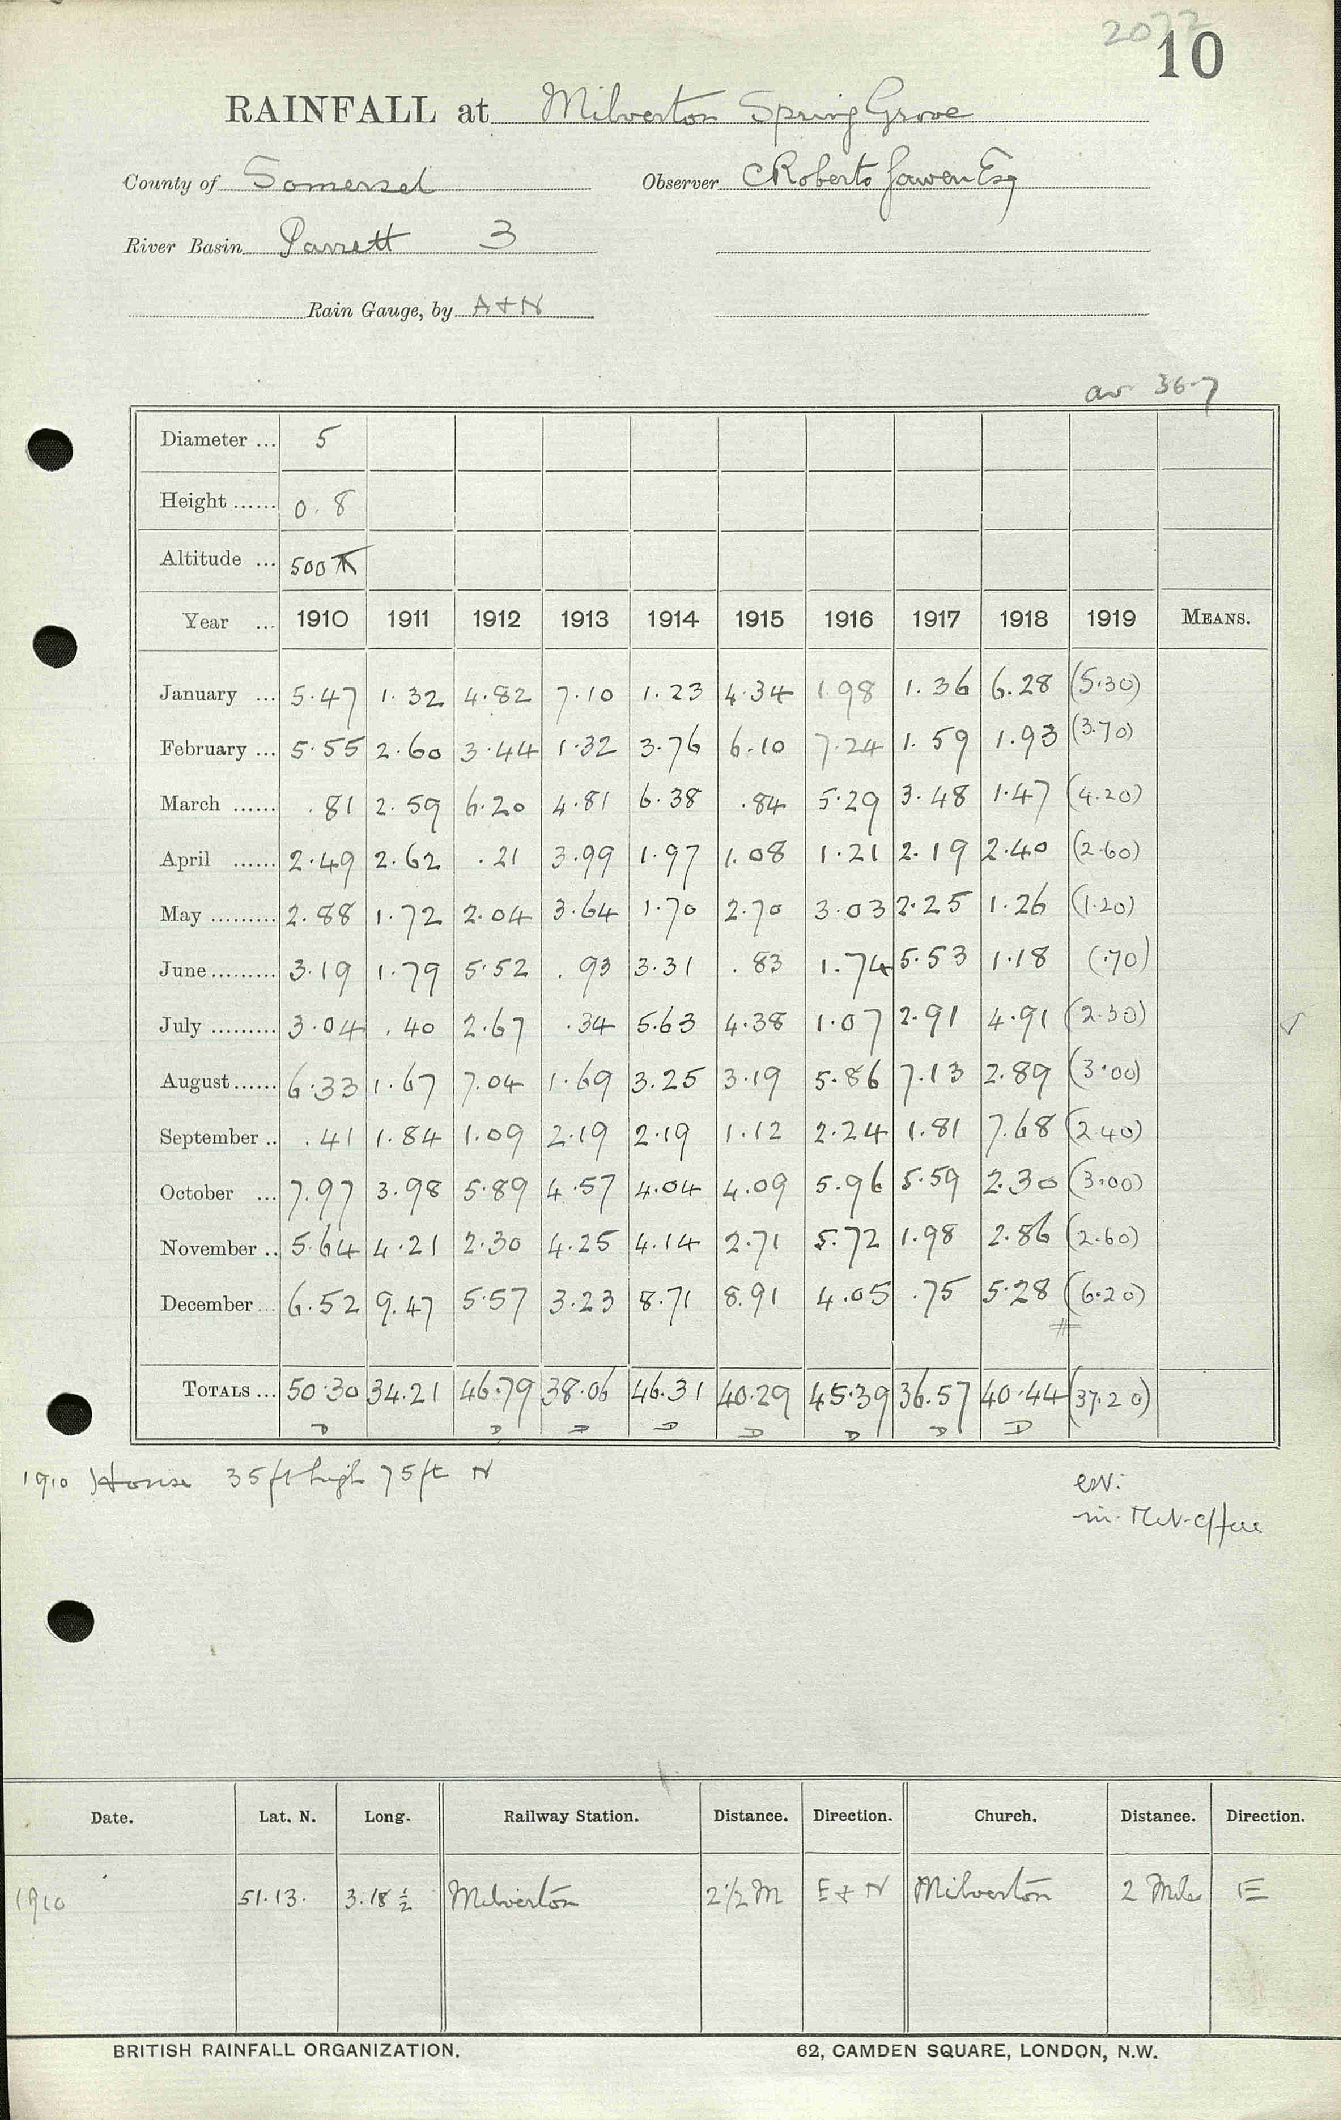 2072
10
RAINFALL at Milverton Spring Grove
County of Somerset Observer C Roberts Gawen Esq
River Basin Parrett 3
Rain Gauge, by A+N
av 36.7
Diameter ... 5
Height ...... 0.8
Altitude ... 500
Year ... 1910 1911 1912 1913 1914 1915 1916 1917 1918 1919 MEANS.
January ... 5.47 1.32 4.82 7.10 1.23 4.34 1.98 1.36 6.28 (5.30)
February ... 5.55 2.60 3.44 1.32 3.76 6.10 7.24 1.59 1.93 (3.70)
March ...... .81 2.59 6.20 4.81 6.38 .84 5.29 3.48 1.47 (4.20)
April ...... 2.49 2.62 .21 3.99 1.97 1.08 1.21 2.19 2.40 (2.60)
May ......... 2.88 1.72 2.04 3.64 1.70 2.70 3.03 2.25 1.26 (1.20)
June ......... 3.19 1.79 5.52 .93 3.31 .83 1.74 5.53 1.18 (.70)
July ......... 3.04 .40 2.67 .34 5.63 4.38 1.07 2.91 4.91 (2.30)
August ...... 6.33 1.67 7.04 1.69 3.25 3.19 5.86 7.13 2.89 (3.00)
September .. .41 1.84 1.09 2.19 2.19 1.12 2.24 1.81 7.68 (2.40)
October ... 7.97 3.98 5.89 4.57 4.04 4.09 5.96 5.59 2.30 (3.00)
November .. 5.64 4.21 2.30 4.25 4.14 2.71 5.72 1.98 2.86 (2.60)
December ... 6.52 9.47 5.57 3.23 8.71 8.91 4.05 .75 5.28 (6.20)
#
TOTALS ... 50.30 34.21 46.79 38.06 46.31 40.29 45.39 36.57 40.44 (37.20)
D D D D D D D D
1910 House 35 ft high 75 ft N
in Met. Office
Date. Lat. N. Long. Railway Station. Distance. Direction. Church. Distance. Direction.
1910 51.13. 3.18½ Milverton 2½ M E + N Milverton 2 Miles E
BRITISH RAINFALL ORGANIZATION. 62, CAMDEN SQUARE, LONDON, N.W.